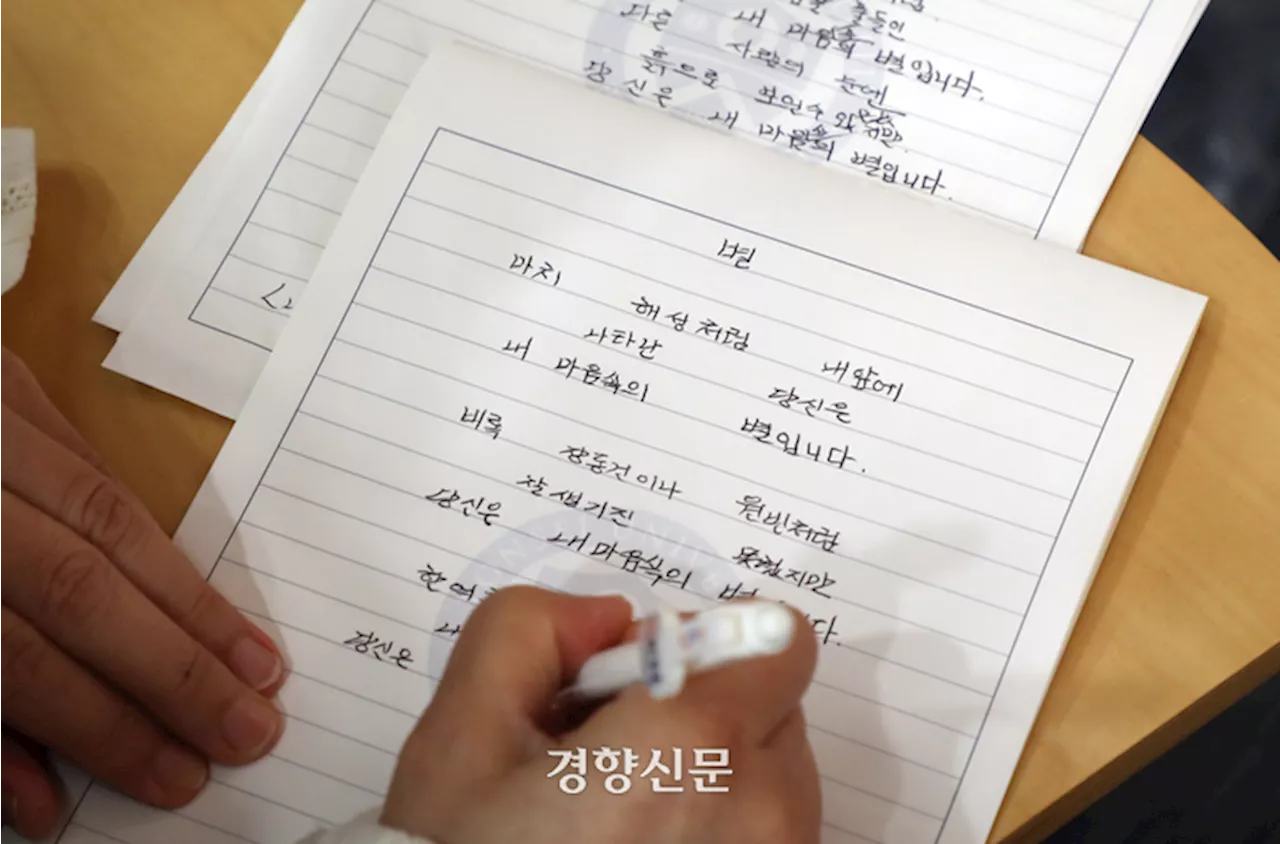 내 마음속의 별입니다.
다른 사람의 눈에
흙으로 보일수
당신은 내 마음속의 별입니다.
별
마치 해성처럼 내앞에
나타난 당신은
내 마음속의 별입니다.
비록 장동건이나 원빈처럼
잘생기진 못했지만
당신은 내마음속의
한여
당신은
경향신문